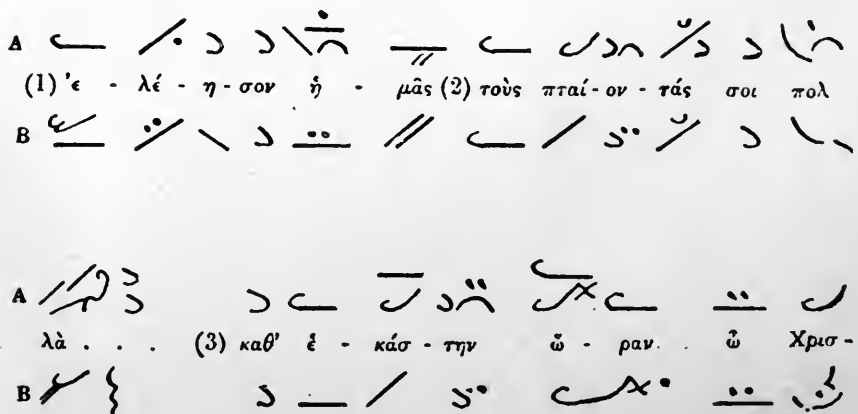 A
(1) 'ε - λέ - η - σον ἡ - μᾶς (2) τοὺς πταί - ον - τάς σοι πολ
B
A
λὰ . . . (3) καθ' ἑ - κάσ - την ὥ - ραν . ὦ Χρισ -
B